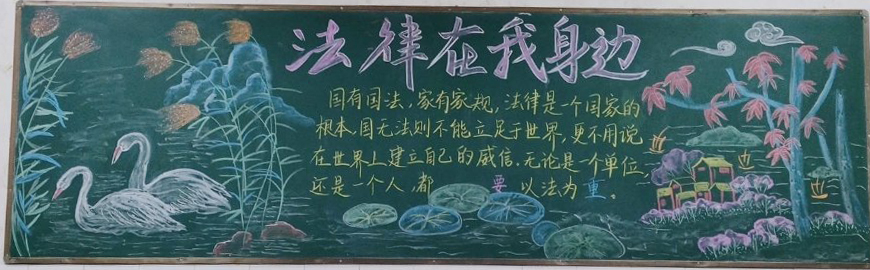 法律在我身边
国有国法，家有家规，法律是一个国家的
根本，国无法则不能立足于世界，更不用说
在世界上建立自己的威信，无论是一个单位，
还是一个人，都 要 以法为重。